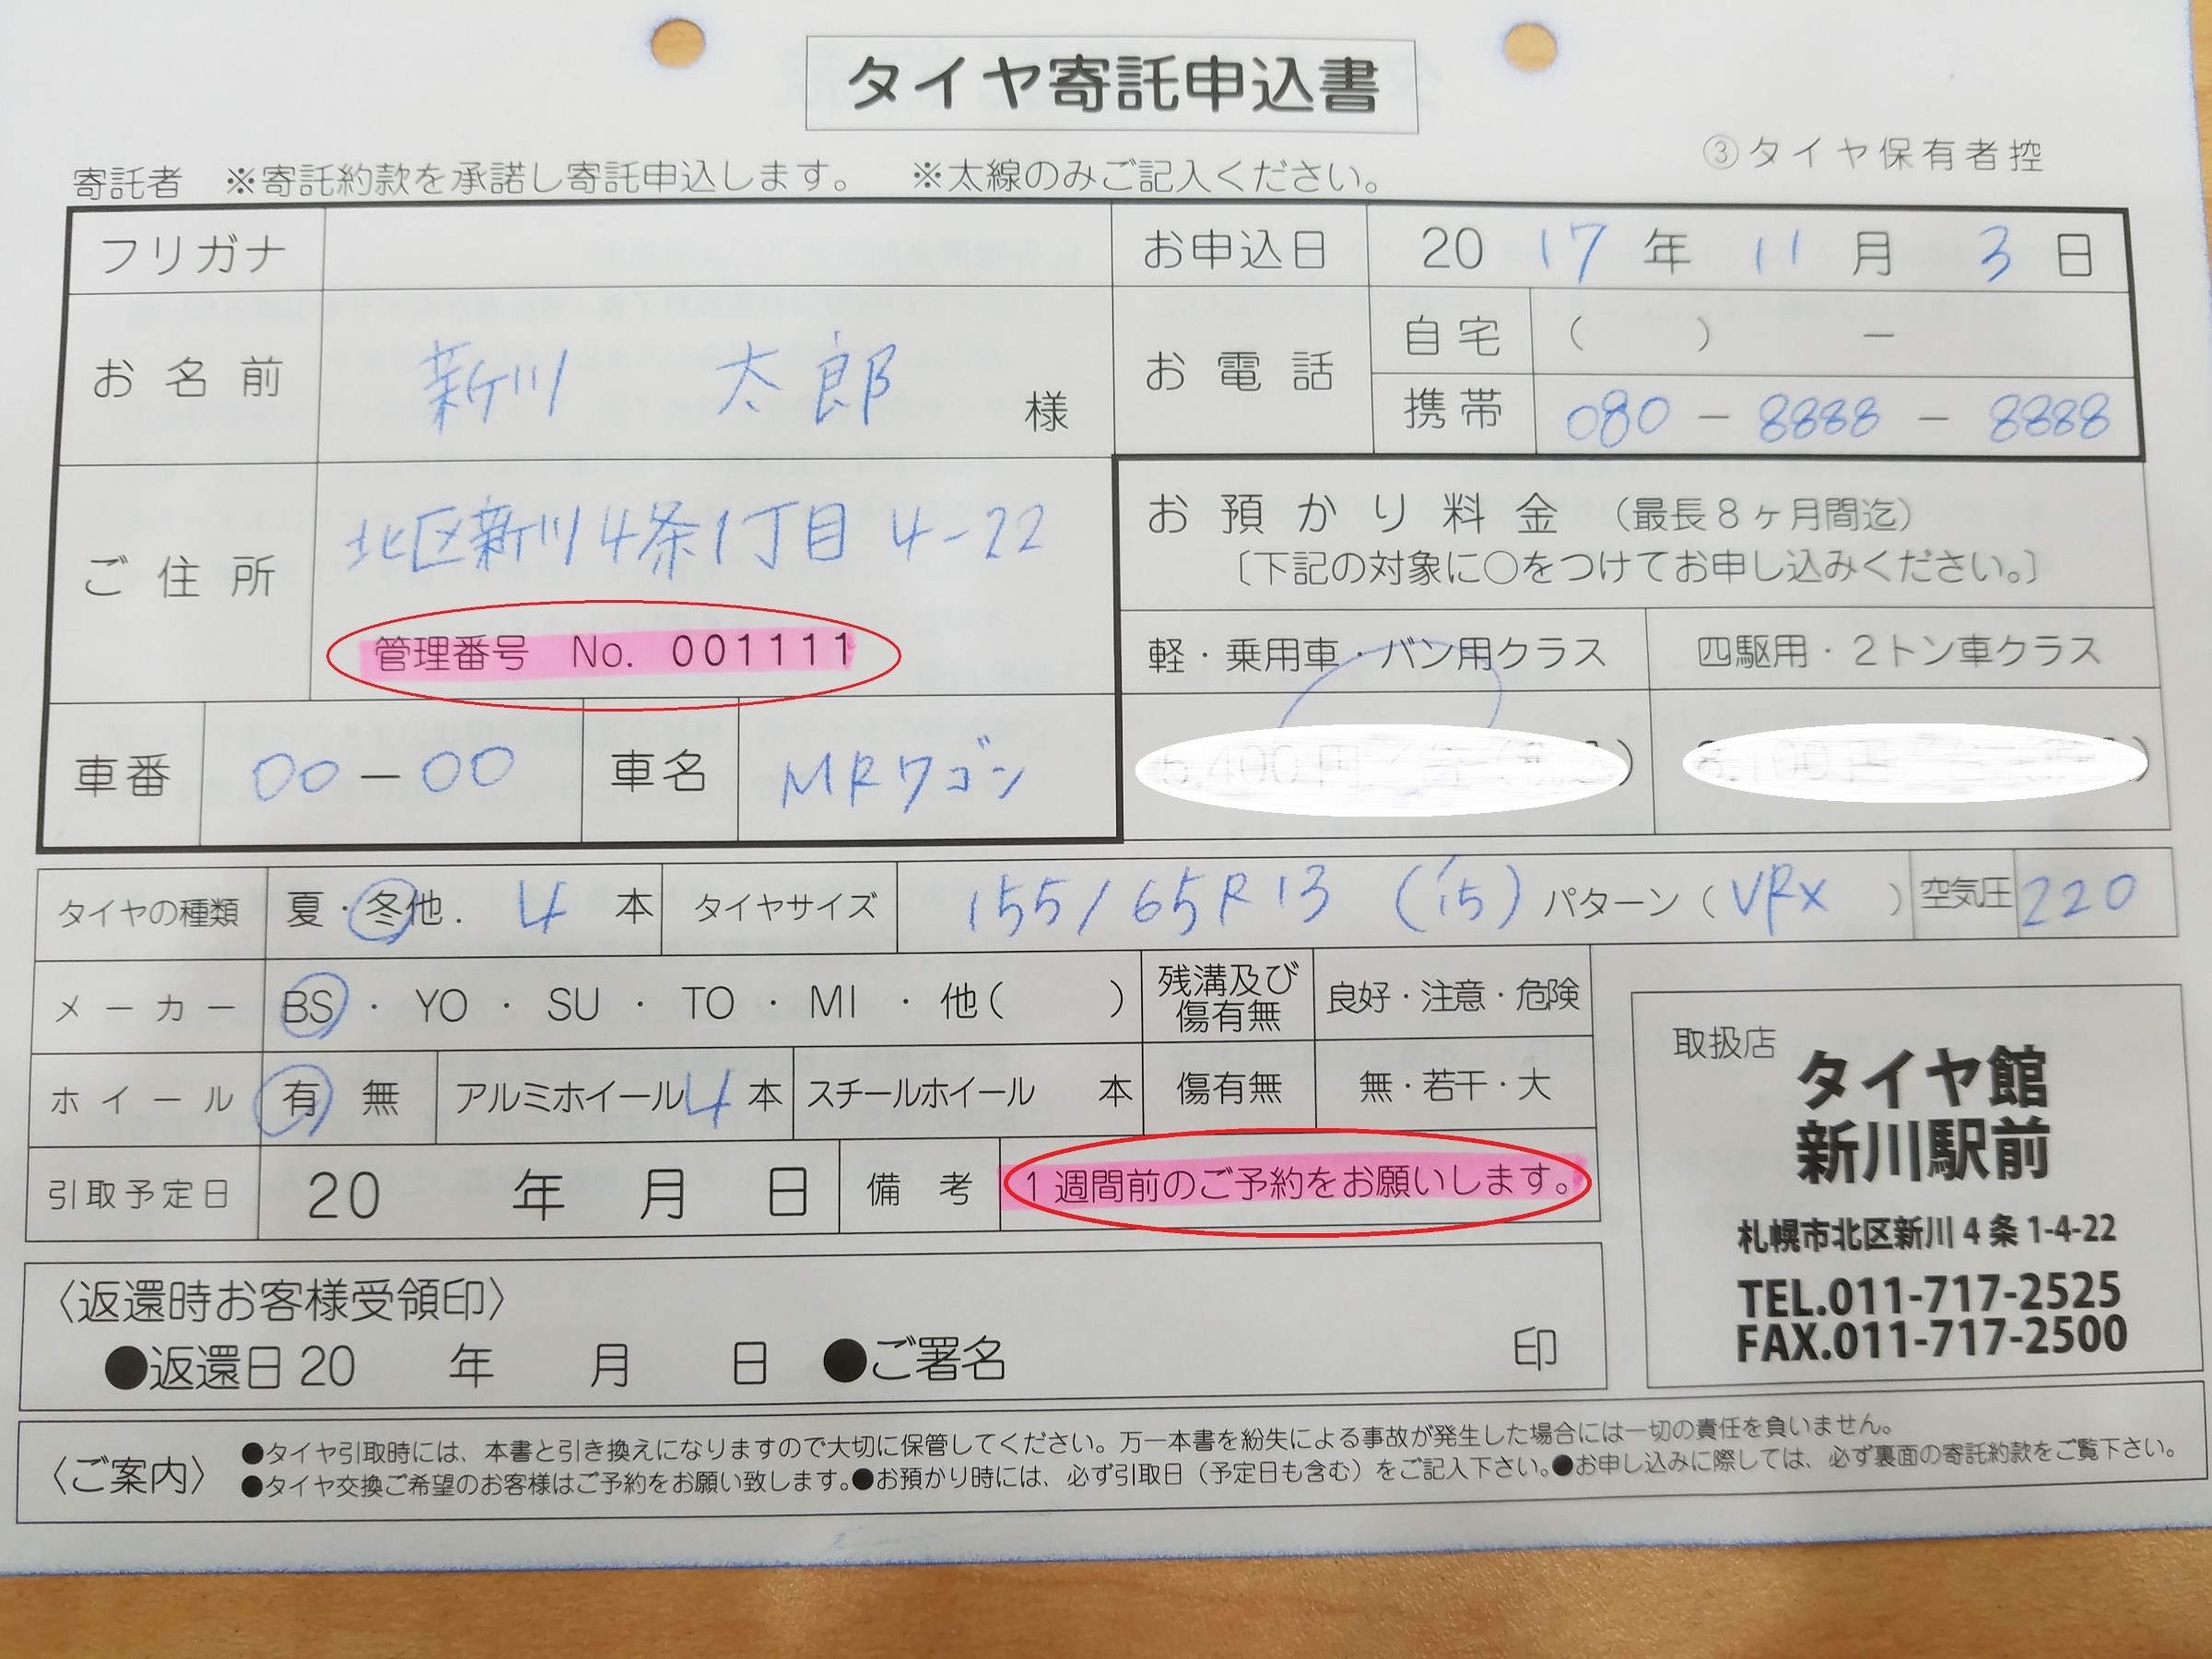 タイヤ寄託申込書
③タイヤ保有者控
寄託者 ※寄託約款を承諾し寄託申込します。 ※太線のみご記入ください。
フリガナ
お申込日 20 17 年 11 月 3 日
お名前 新川 太郎 様
お電話 自宅 ( ) −
携帯 080 − 8888 − 8888
ご住所 北区新川4条1丁目 4-22
管理番号 No. 001111
お預かり料金 (最長8ヶ月間迄)
〔下記の対象に○をつけてお申し込みください。〕
軽・乗用車・バン用クラス 四駆用・2トン車クラス
車番 00-00 車名 MRワゴン
タイヤの種類 夏・冬他. 4 本 タイヤサイズ 155/65R13 ('15) パターン( VRX ) 空気圧 220
メーカー BS・YO・SU・TO・MI・他( ) 残溝及び傷有無 良好・注意・危険
ホイール 有 無 アルミホイール 4 本 スチールホイール 本 傷有無 無・若干・大
引取予定日 20 年 月 日 備考 1週間前のご予約をお願いします。
取扱店
タイヤ館
新川駅前
札幌市北区新川4条1-4-22
TEL.011-717-2525
FAX.011-717-2500
〈返還時お客様受領印〉
●返還日20 年 月 日 ●ご署名 印
〈ご案内〉
●タイヤ引取時には、本書と引き換えになりますので大切に保管してください。万一本書を紛失による事故が発生した場合には一切の責任を負いません。
●タイヤ交換ご希望のお客様はご予約をお願い致します。●お預かり時には、必ず引取日(予定日も含む)をご記入下さい。●お申し込みに際しては、必ず裏面の寄託約款をご覧下さい。